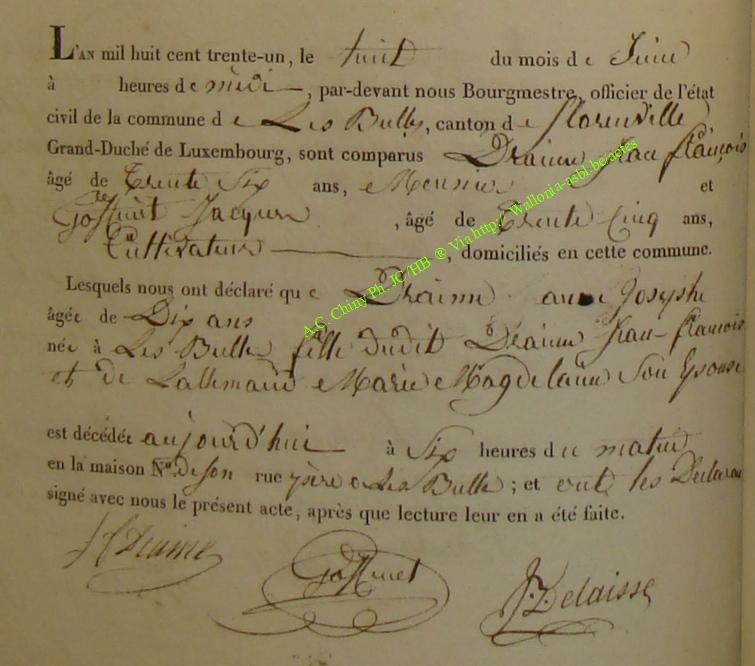 L'AN mil huit cent trente-un, le huit du mois de Juin
à heures de midi, par-devant nous Bourgmestre, officier de l'état
civil de la commune de Les Bulles, canton de Florenville
Grand-Duché de Luxembourg, sont comparus Draime Jean françois
âgé de Trente Six ans, Meunier et
Goffinet Jacques, âgé de Trente Cinq ans,
Cultivateur, domiciliés en cette commune.
Lesquels nous ont déclaré que Draime anne Josephe
âgée de Dix ans
née à Les Bulles fille dudit Draime Jean-françois
et de Lallemand Marie Magdelaine Son Epouse
est décédée aujourd'hui à Six heures du matin
en la maison N.º de son rue père a Les Bulle; et ont les Declarans
signé avec nous le présent acte, après que lecture leur en a été faite.
Draime
Goffinet
J. Delaisse
A.C. Chiny Ph. JC/HB ® Via http://Wallonia-asbl.be/actes